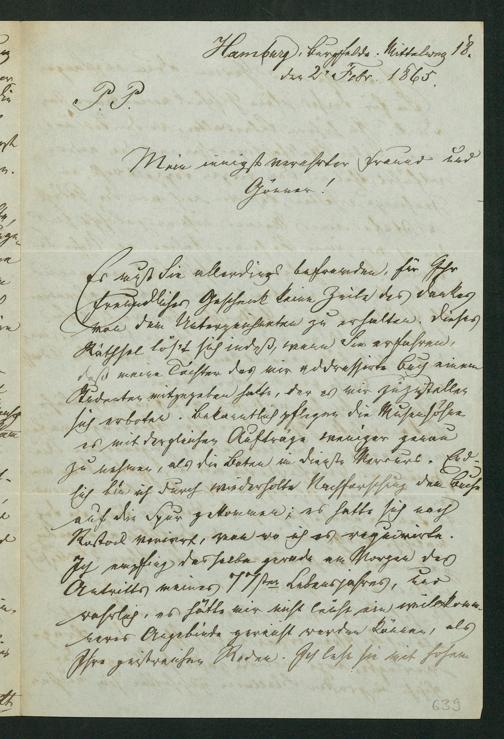 Hamburg, Burgfelde. Mittelweg 18.
den 2. Febr. 1865.
P. P.
Mein innigst verehrter Freund und
Gönner!
Es muß Sie allerdings befremden, für Ihr
freundliches Geschenk keine Zeile des Dankes
von dem Unterzeichneten zu erhalten. Dieses
Räthsel lös't sich indeß, wenn Sie erfahren,
daß meine Tochter das mir addressirte Buch einem
Studenten mitgegeben hatte, der es mir zuzustellen
sich erboten. Bekanntlich pflegen die Musensöhne
es mit dergleichen Aufträge weniger genau
zu nehmen, als die Boten im Dienste Mercurs. End-
lich bin ich durch wiederholte Nachforschung dem Buche
auf die Spur gekommen; es hatte sich nach
Rostock verirrt, von wo ich es requirirte.
Ich empfing dasselbe gerade am Morgen des
Antritts meines 77sten Lebensjahres, und
wahrlich, es hätte mir nicht leicht ein willkomm-
neres Angebinde gereicht werden können, als
Ihre geistreichen Reden. Ich lese sie mit hohem
639